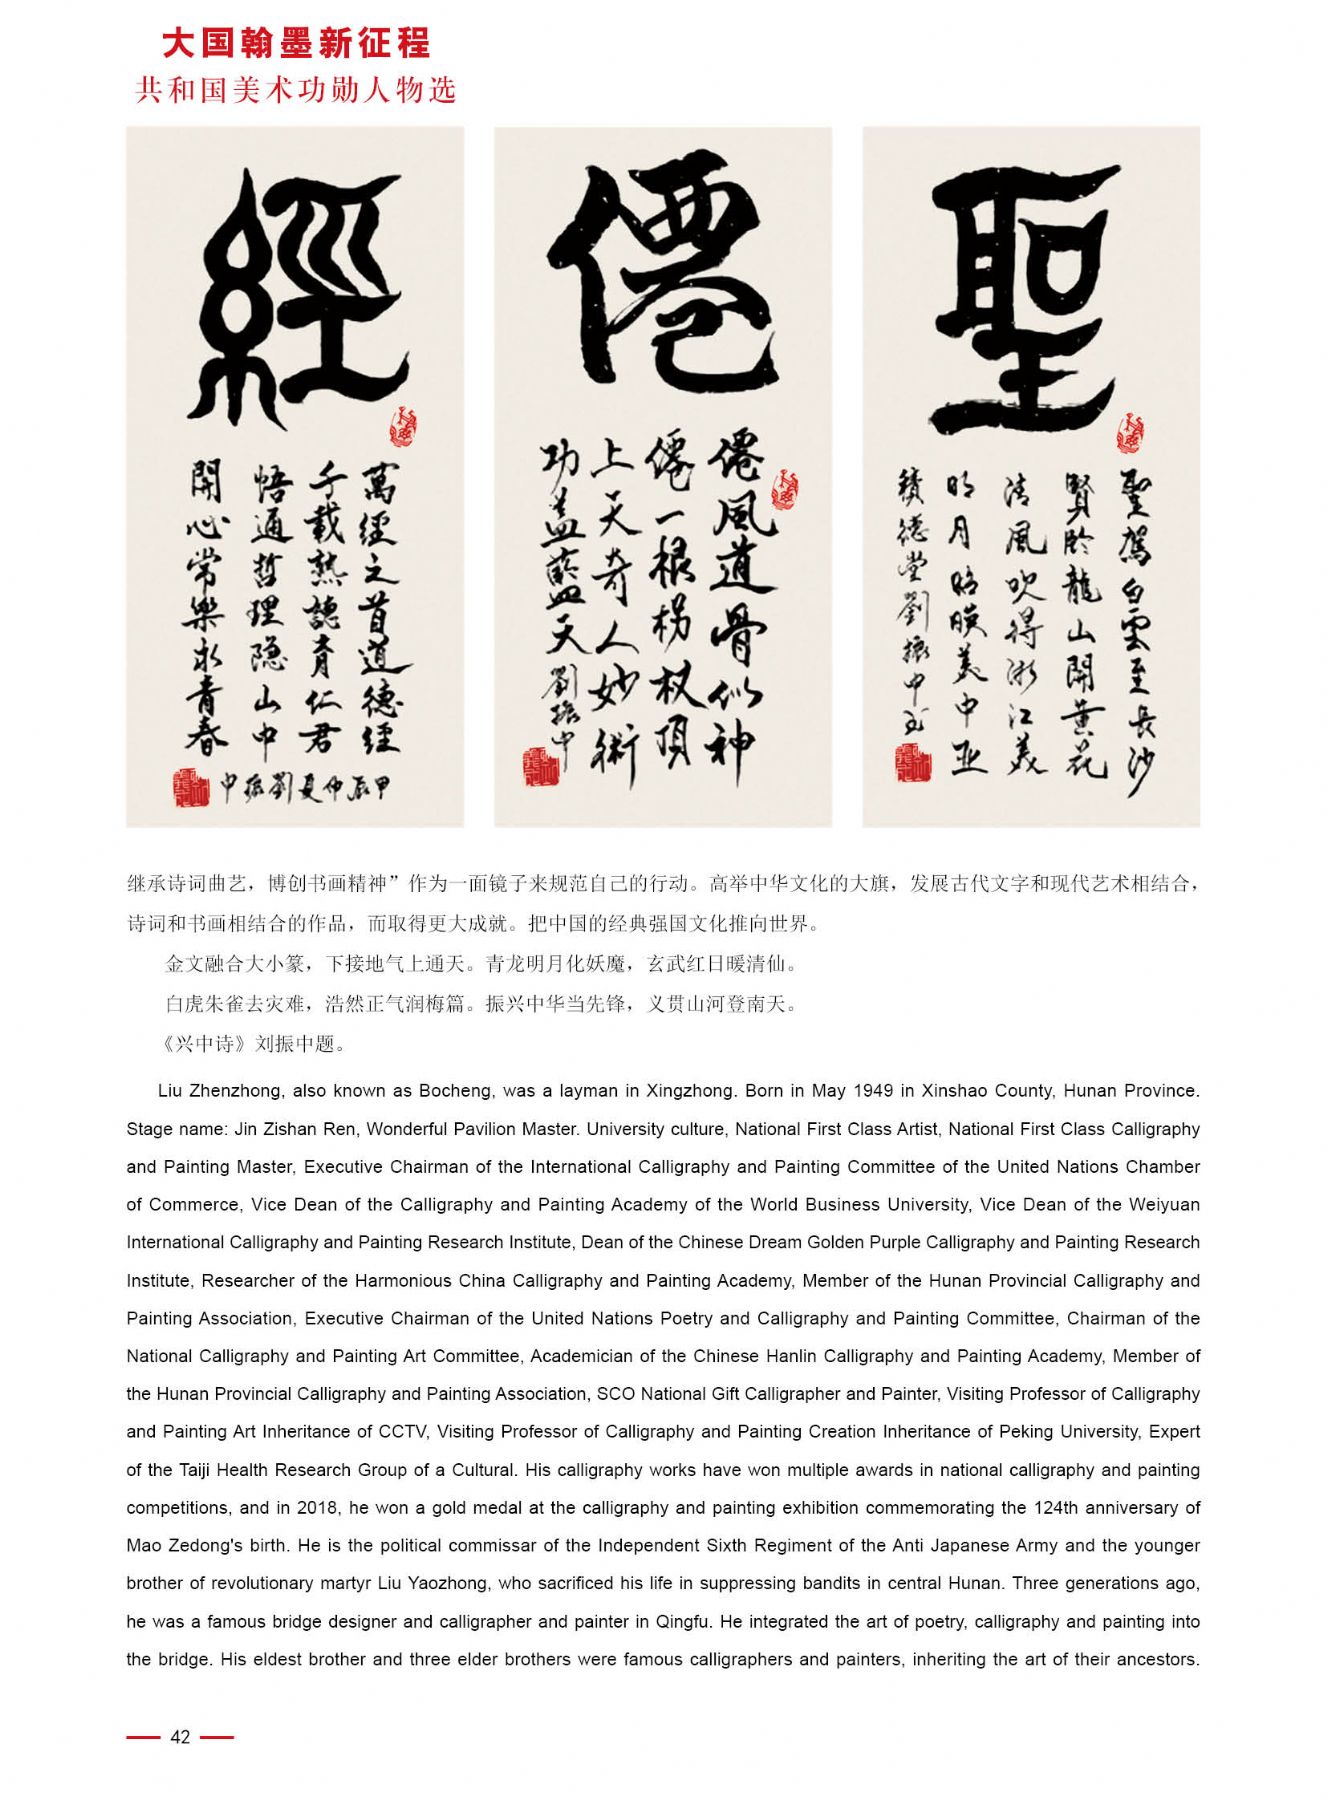 大国翰墨新征程
共和国美术功勋人物选
經
萬經之首道德經
千载熟讀育仁君
悟通哲理隐山中
開心常樂永青春
甲辰仲夏劉振中
僊
僊風道骨似神
僊一根枴杖頂
上天奇人妙術
功盖藍天劉振中
聖
聖駕白雲至長沙
賢於龍山開黄花
清風吹得浙江美
明月照暎美中亚
積德堂劉振中书
继承诗词曲艺，博创书画精神”作为一面镜子来规范自己的行动。高举中华文化的大旗，发展古代文字和现代艺术相结合，
诗词和书画相结合的作品，而取得更大成就。把中国的经典强国文化推向世界。
金文融合大小篆，下接地气上通天。青龙明月化妖魔，玄武红日暖清仙。
白虎朱雀去灾难，浩然正气润梅篇。振兴中华当先锋，义贯山河登南天。
《兴中诗》刘振中题。
Liu Zhenzhong, also known as Bocheng, was a layman in Xingzhong. Born in May 1949 in Xinshao County, Hunan Province.
Stage name: Jin Zishan Ren, Wonderful Pavilion Master. University culture, National First Class Artist, National First Class Calligraphy
and Painting Master, Executive Chairman of the International Calligraphy and Painting Committee of the United Nations Chamber
of Commerce, Vice Dean of the Calligraphy and Painting Academy of the World Business University, Vice Dean of the Weiyuan
International Calligraphy and Painting Research Institute, Dean of the Chinese Dream Golden Purple Calligraphy and Painting Research
Institute, Researcher of the Harmonious China Calligraphy and Painting Academy, Member of the Hunan Provincial Calligraphy and
Painting Association, Executive Chairman of the United Nations Poetry and Calligraphy and Painting Committee, Chairman of the
National Calligraphy and Painting Art Committee, Academician of the Chinese Hanlin Calligraphy and Painting Academy, Member of
the Hunan Provincial Calligraphy and Painting Association, SCO National Gift Calligrapher and Painter, Visiting Professor of Calligraphy
and Painting Art Inheritance of CCTV, Visiting Professor of Calligraphy and Painting Creation Inheritance of Peking University, Expert
of the Taiji Health Research Group of a Cultural. His calligraphy works have won multiple awards in national calligraphy and painting
competitions, and in 2018, he won a gold medal at the calligraphy and painting exhibition commemorating the 124th anniversary of
Mao Zedong's birth. He is the political commissar of the Independent Sixth Regiment of the Anti Japanese Army and the younger
brother of revolutionary martyr Liu Yaozhong, who sacrificed his life in suppressing bandits in central Hunan. Three generations ago,
he was a famous bridge designer and calligrapher and painter in Qingfu. He integrated the art of poetry, calligraphy and painting into
the bridge. His eldest brother and three elder brothers were famous calligraphers and painters, inheriting the art of their ancestors.
42